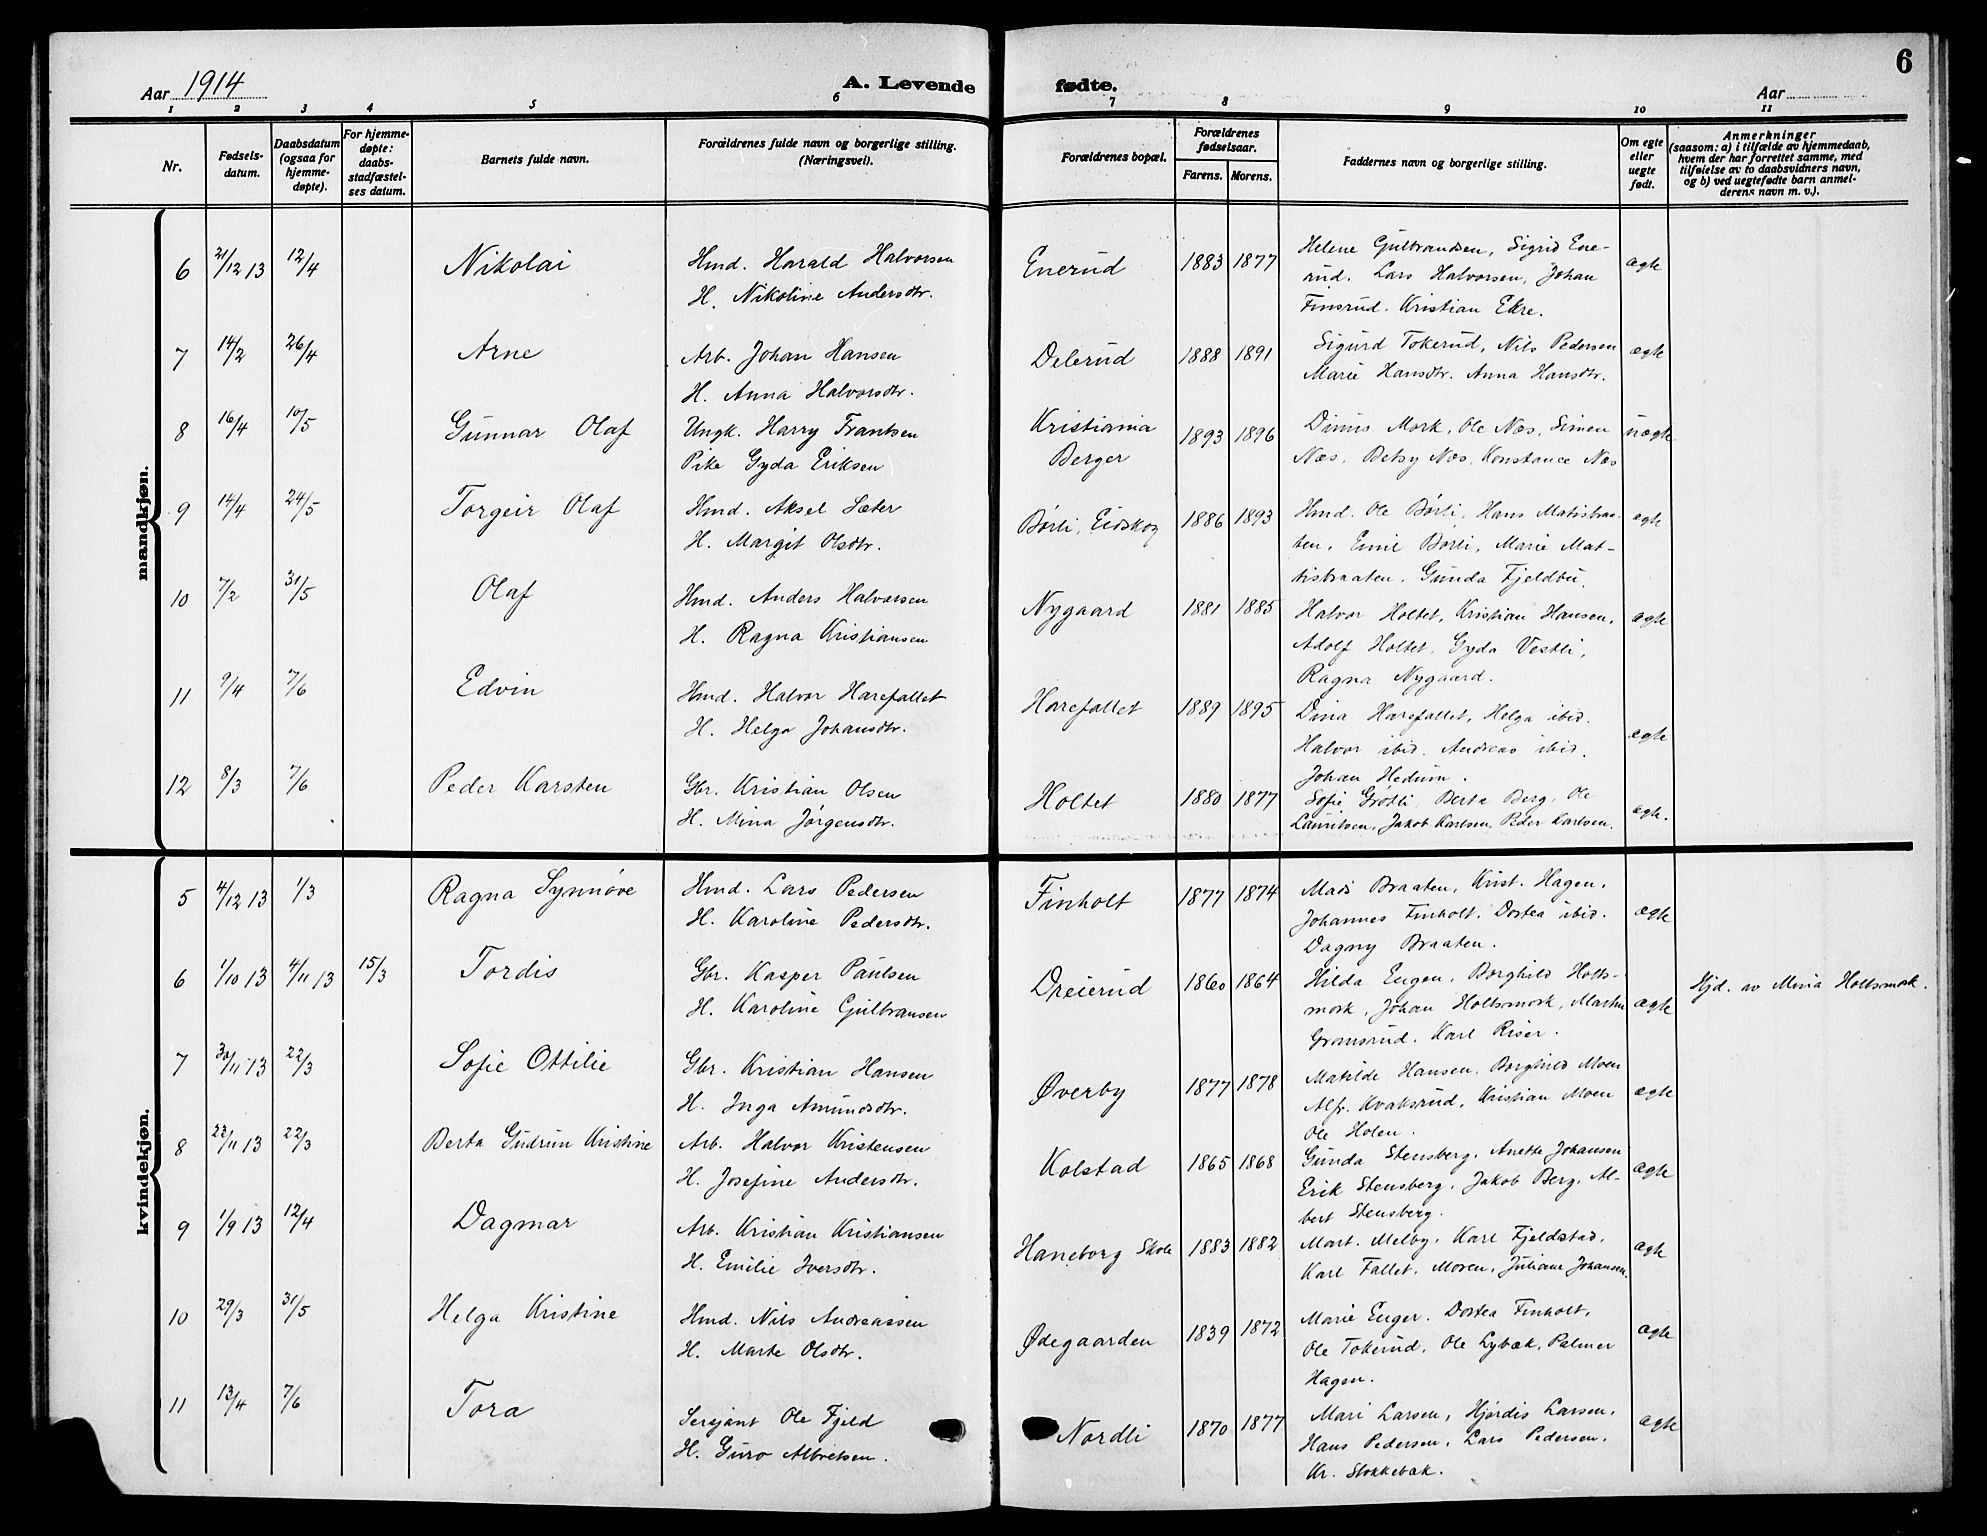 Aar 1914 A. Levende fødte. Aar 6
1 2 3 4 5 6 7 8 9 10 11
Nr.
Fødsels-
datum.
Daabsdatum
(ogsaa for
hjemme-
døpte).
For hjemme-
døpte:
daabs-
stadfæstel-
ses datum.
Barnets fulde navn.
Forældrenes fulde navn og borgerlige stilling.
(Næringsvei).
Forældrenes bopæl.
Forældrenes
fødselsaar.
Farens. Morens.
Faddernes navn og borgerlige stilling.
Om egte
eller
uegte
født.
Anmerkninger
(saasom: a) i tilfælde av hjemmedaab,
hvem der har forrettet samme, med
tilføielse av to daabsvidners navn,
og b) ved uegtefødte barn anmel-
derens navn m. v.).
mandkjøn.
6 21/12 13 12/4 Nikolai Hmd. Harald Halvorsen Enerud 1883 1877 Helene Gulbrandsen, Sigrid Ene- ægte
H. Nikoline Andersdtr. rud. Lars Halvorsen, Johan
Finsrud. Kristian Ekre.
7 14/2 26/4 Arne Arb. Johan Hansen Delerud 1888 1891 Sigurd Tokerud, Nils Pedersen ægte
H. Anna Halvorsdtr. Marie Hansdtr. Anna Hansdtr.
8 16/4 10/5 Gunnar Olaf Ungk. Harry Frantsen Kristiania 1893 1896 Mork, Ole Næs, Simen uægte
Pike Gyda Eriksen Berger Næs, Betsy Næs, Konstance Næs
9 14/4 24/5 Torgeir Olaf Hmd. Aksel Sæter Børli, Eidskog 1886 1893 Hmd. Ole Børli, Hans Matisbraa- ægte
H. Margit Olsdtr. ten, Emil Børli, Marie Mat-
tisbraaten. Gunda Fjeldbu.
10 7/2 31/5 Olaf Hmd. Anders Halvorsen Nygaard 1881 1885 Halvor Holtet, Kristian Hansen, ægte
H. Ragna Kristiansen Adolf Holtet, Gyda Vestli,
Ragna Nygaard.
11 9/4 7/6 Edvin Hmd. Halvor Harefallet Harefallet 1889 1895 Dina Harefallet, Helga ibid. ægte
H. Helga Johansdtr. Halvor ibid. Andreas ibid.
Johan Hedum.
12 8/3 7/6 Peder Karsten Gbr. Kristian Olsen Holtet 1880 1877 Sofie Grøtli, Berta Berg, Ole ægte.
H. Mina Jørgensdtr. Lauritsen, Jakob Karlsen, Peder Karlsen.
kvindekjøn.
5 4/12 13 1/3 Ragna Synnøve Hmd. Lars Pedersen Finholt 1877 1874 Madi Braaten, Krist. Hagen, ægte
H. Karoline Pedersdtr. Johannes Finholt, Dortea ibid.
Dagny Braaten.
6 1/10 13 4/11 13 15/3 Tordis Gbr. Kasper Paulsen Dreierud 1860 1864 Hilda Eugen, Borghild Holts- ægte Hjd. av Mina Holtsmork.
H. Karoline Gulbransen mork, Johan Holtsmork, Martin
Gransrud. Karl Riser.
7 30/11 13 22/3 Sofie Ottilie Gbr. Kristian Hansen Øverby 1877 1878 Matilde Hansen, Borghild Moen ægte
H. Inga Amundsdtr. Alfr. Kvaksrud, Kristian Moen
Ole Holen.
8 22/11 13 22/3 Berta Gudrun Kristine Arb. Halvor Kristensen Kolstad 1865 1868 Gunda Stensberg, Anette Johansen ægte
H. Josefine Andersdtr. Erik Stensberg, Jakob Berg, Al-
bert Stensberg.
9 1/9 13 12/4 Dagmar Arb. Kristian Kristiansen Haneborg Skole 1883 1882 Mart. Melby, Karl Fjeldstad, ægte
H. Emilie Iversdtr. Karl Fallet, Moren, Juliane Johansen.
10 29/3 31/5 Helga Kristine Hmd. Nils Andreassen Ødegaarden 1839 1872 Marie Euger. Dortea Finholt, ægte
H. Marte Olsdtr. Ole Tokerud, Ole Lybæk, Palmer
Hagen.
11 13/4 7/6 Tora Sersjant Ole Fjeld Nordli 1870 1877 Mari Larsen, Hjørdis Larsen, ægte
H. Guro Albretsen. Hans Pedersen, Lars Pedersen,
Kr. Stokkebæk.